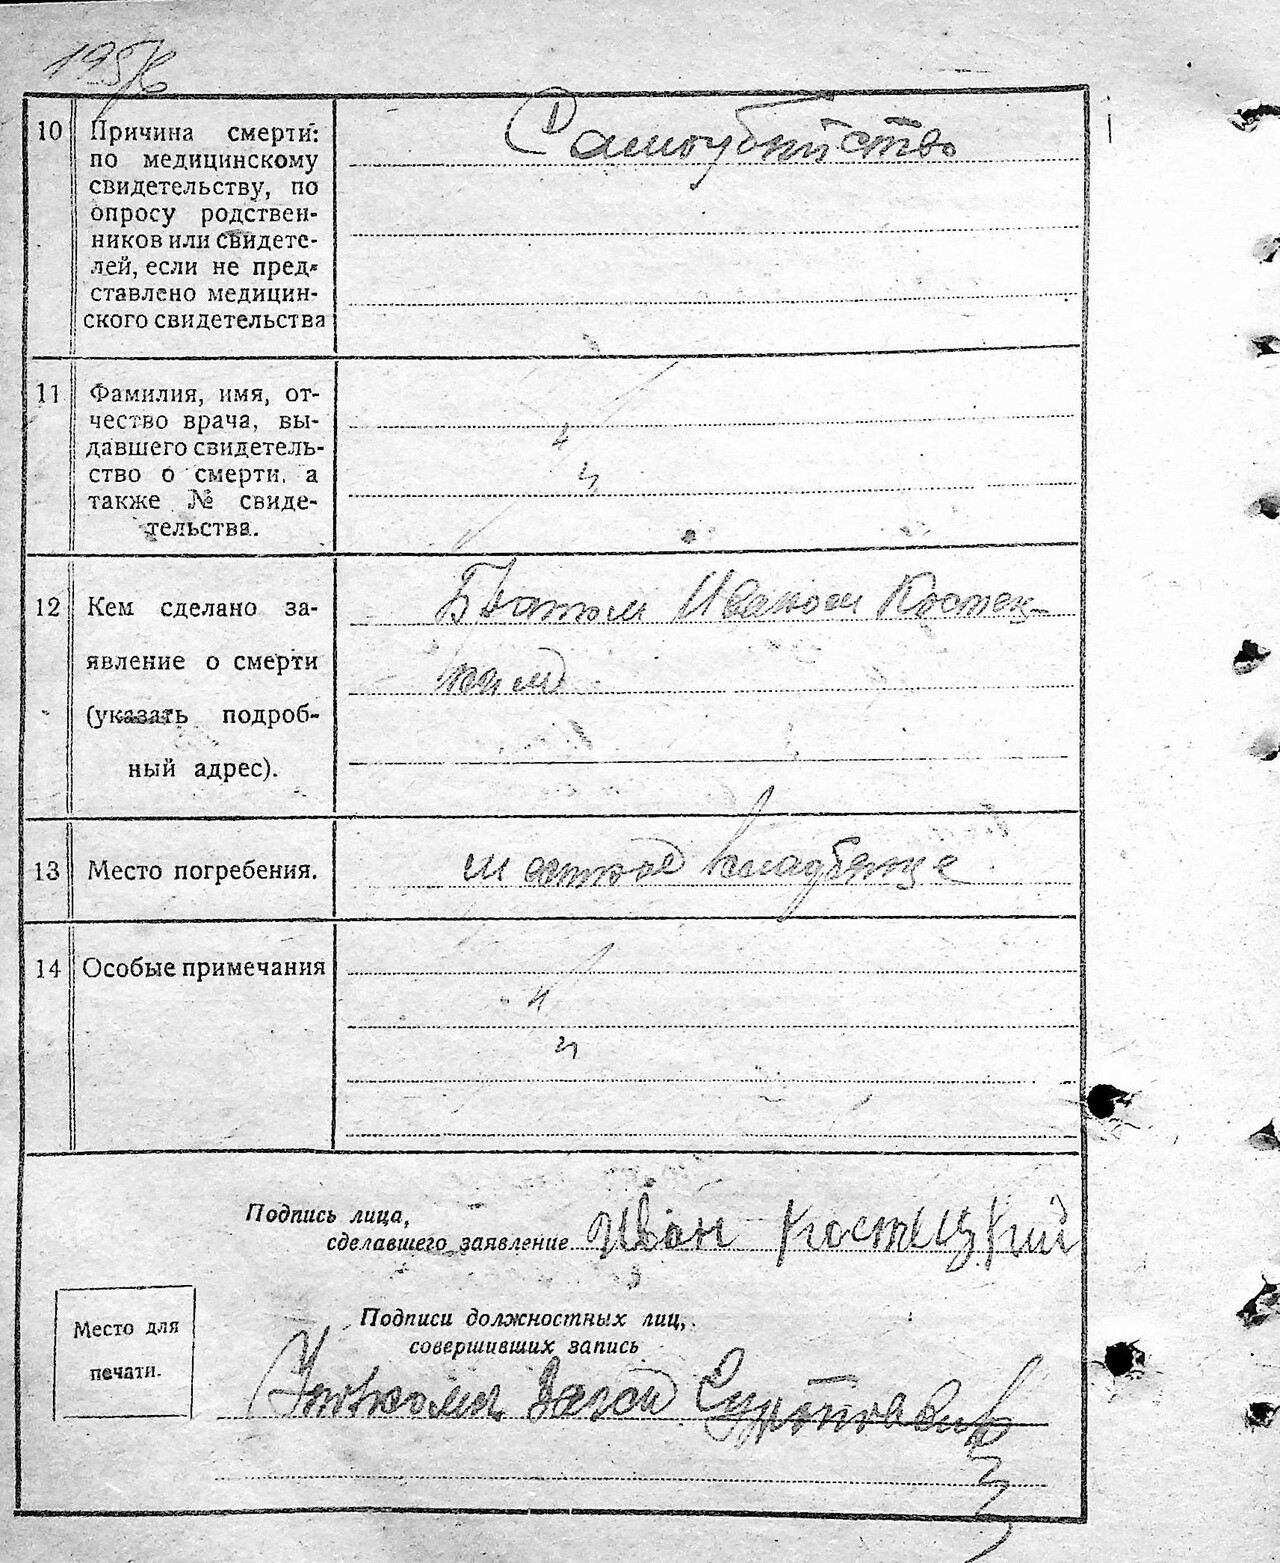 10 Причина смерти: Самоубийство
по медицинскому
свидетельству, по
опросу родствен-
ников или свидете-
лей, если не пред-
ставлено медицин-
ского свидетельства
11 Фамилия, имя, от-
чество врача, вы-
давшего свидетель-
ство о смерти, а
также № свиде-
тельства.
12 Кем сделано за- Братом Иваном Костец-
явление о смерти ким
(указать подроб-
ный адрес).
13 Место погребения. местное кладбище
14 Особые примечания
Подпись лица,
сделавшего заявление Иван Костецкий
Место для
печати.
Подписи должностных лиц,
совершивших запись